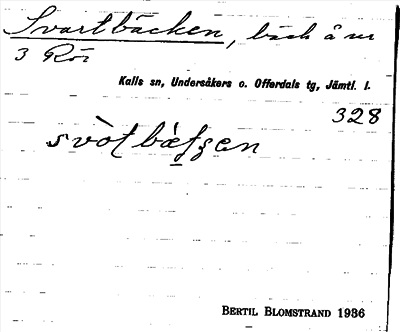 Svartbäcken, bäck å nr
3 Rör
Kalls sn, Undersåkers o. Offerdals tg, Jämtl. l.
328
svòtbæ̀ʃʒen
BERTIL BLOMSTRAND 1986